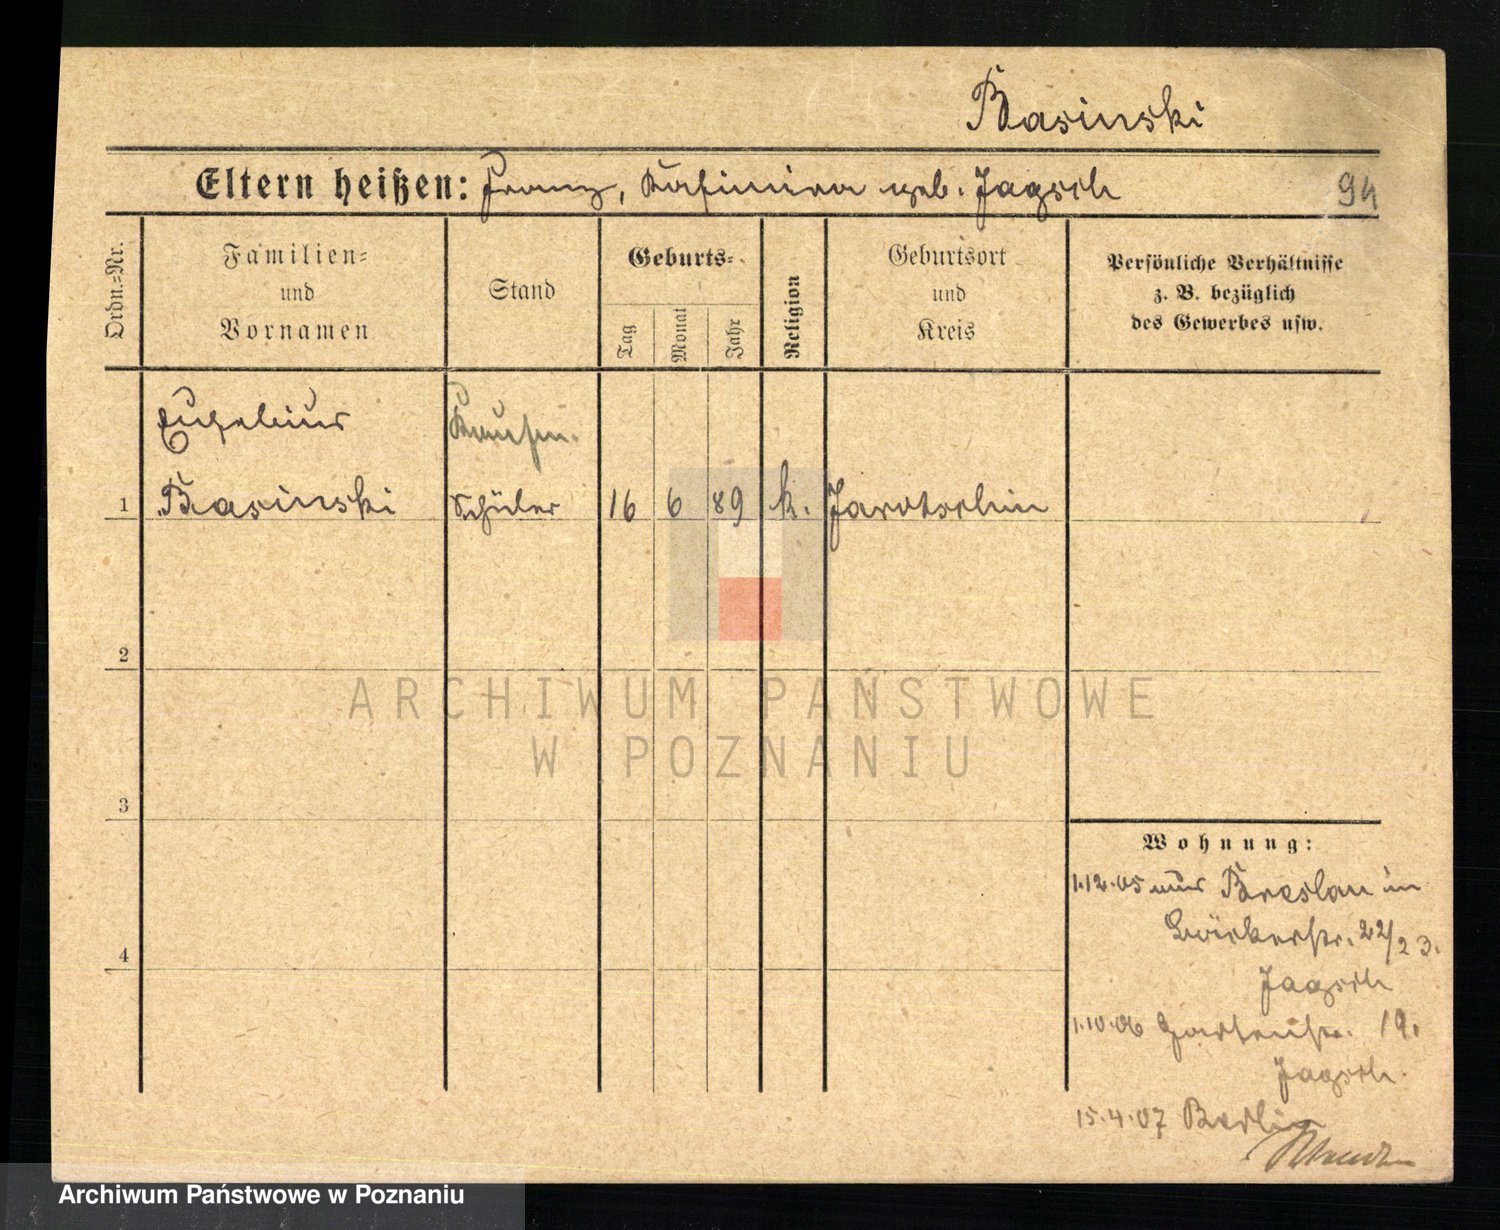 Basinski
Eltern heißen: Franz, Kasimira geb. Jagsch
94
Ordn.=Nr.
Familien=
und
Vornamen
Stand
Geburts=
Tag
Monat
Jahr
Religion
Geburtsort
und
Kreis
Persönliche Verhältnisse
z. B. bezüglich
des Gewerbes usw.
Eusebius
Kaufm.
1 Basinski Schüler 16 6 89 k. Jarotschin
2
3
4
ARCHIWUM PAŃSTWOWE
W POZNANIU
Wohnung:
1.12.05 aus Breslau in
Bäckerstr. 22/23.
Jagsch
1.10.06 Gartenstr. 19.
Jagsch.
15.4.07 Berlin
Archiwum Państwowe w Poznaniu